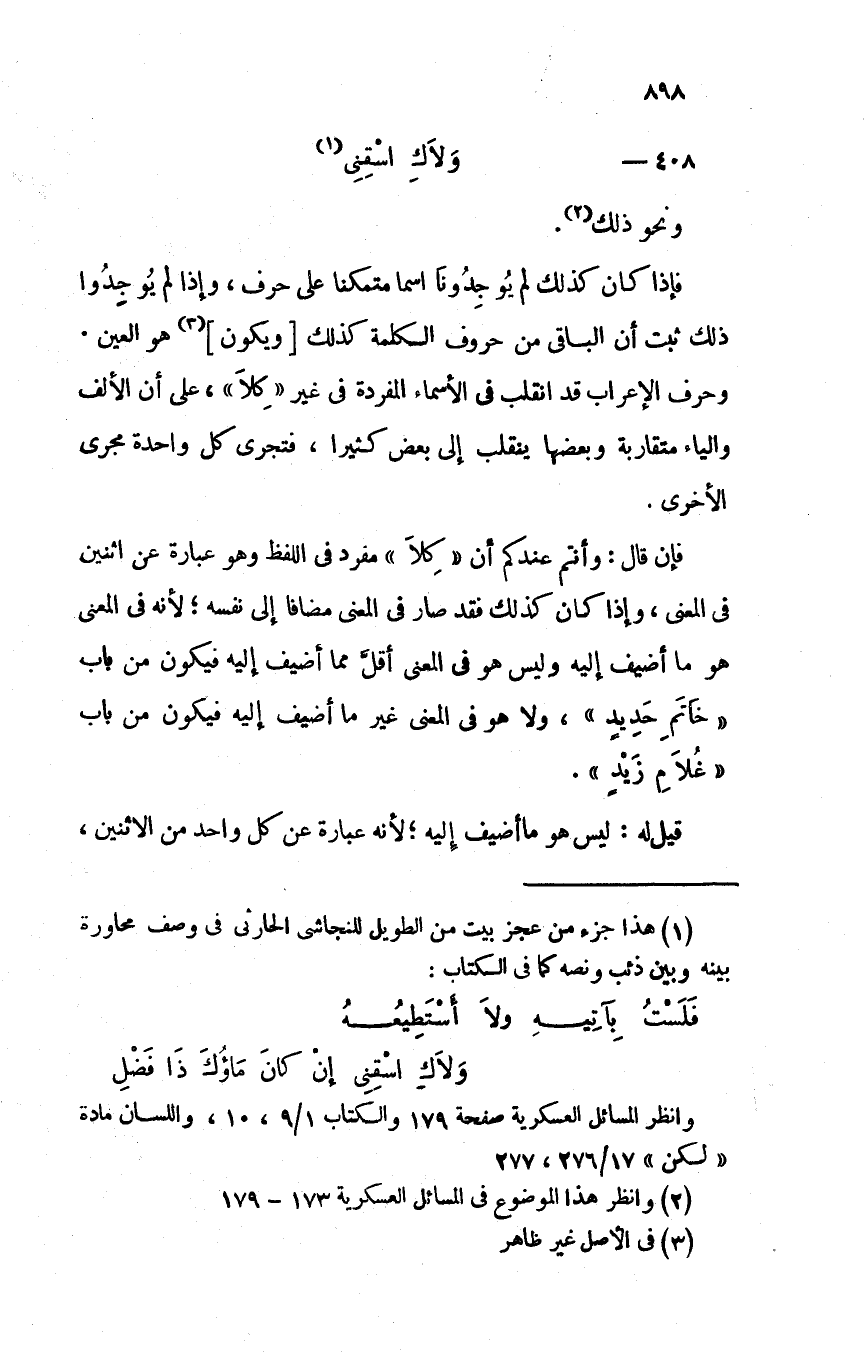 ٨٩٨
٤٠٨ — وَلاَكِ اسْقِنِى(١)
ونحو ذلك(٢).
فإذا كان كذلك لم يُوجِدُونَا اسما متمكنا على حرف ، وإذا لم يُوجِدُوا
ذلك ثبت أن الباقى من حروف الكلمة كذلك [ ويكون ](٣) هو العين .
وحرف الإعراب قد انقلب فى الأسماء المفردة فى غير « كِلاَ » ، على أن الألف
والياء متقاربة وبعضها ينقلب إلى بعض كثيرا ، فتجرى كل واحدة مجرى
الأخرى .
فإن قال : وأنتم عندكم أن « كِلاَ » مفرد فى اللفظ وهو عبارة عن اثنين
فى المعنى ، وإذا كان كذلك فقد صار فى المعنى مضافا إلى نفسه ؛ لأنه فى المعنى
هو ما أضيف إليه وليس هو فى المعنى أقلَّ مما أضيف إليه فيكون من باب
« خَاتَمِ حَدِيدٍ » ، ولا هو فى المعنى غير ما أضيف إليه فيكون من باب
« غُلاَمِ زَيْدٍ » .
قيل له : ليس هو ما أضيف إليه ؛ لأنه عبارة عن كل واحد من الاثنين ،
(١) هذا جزء من عجز بيت من الطويل للنجاشى الحارثى فى وصف محاورة
بينه وبين ذئب ونصه كما فى الكتاب :
فَلَسْتُ بِآتِيـــهِ ولاَ أَسْتَطِيعُـــهُ
وَلاَكِ اسْقِنِى إِنْ كَانَ مَاؤُكَ ذَا فَضْلِ
وانظر المسائل العسكرية صفحة ١٧٩ والكتاب ٩/١ ، ١٠ ، واللسان مادة
« لكن » ٢٧٦/١٧ ، ٢٧٧
(٢) وانظر هذا الموضوع فى المسائل العسكرية ١٧٣ – ١٧٩
(٣) فى الأصل غير ظاهر